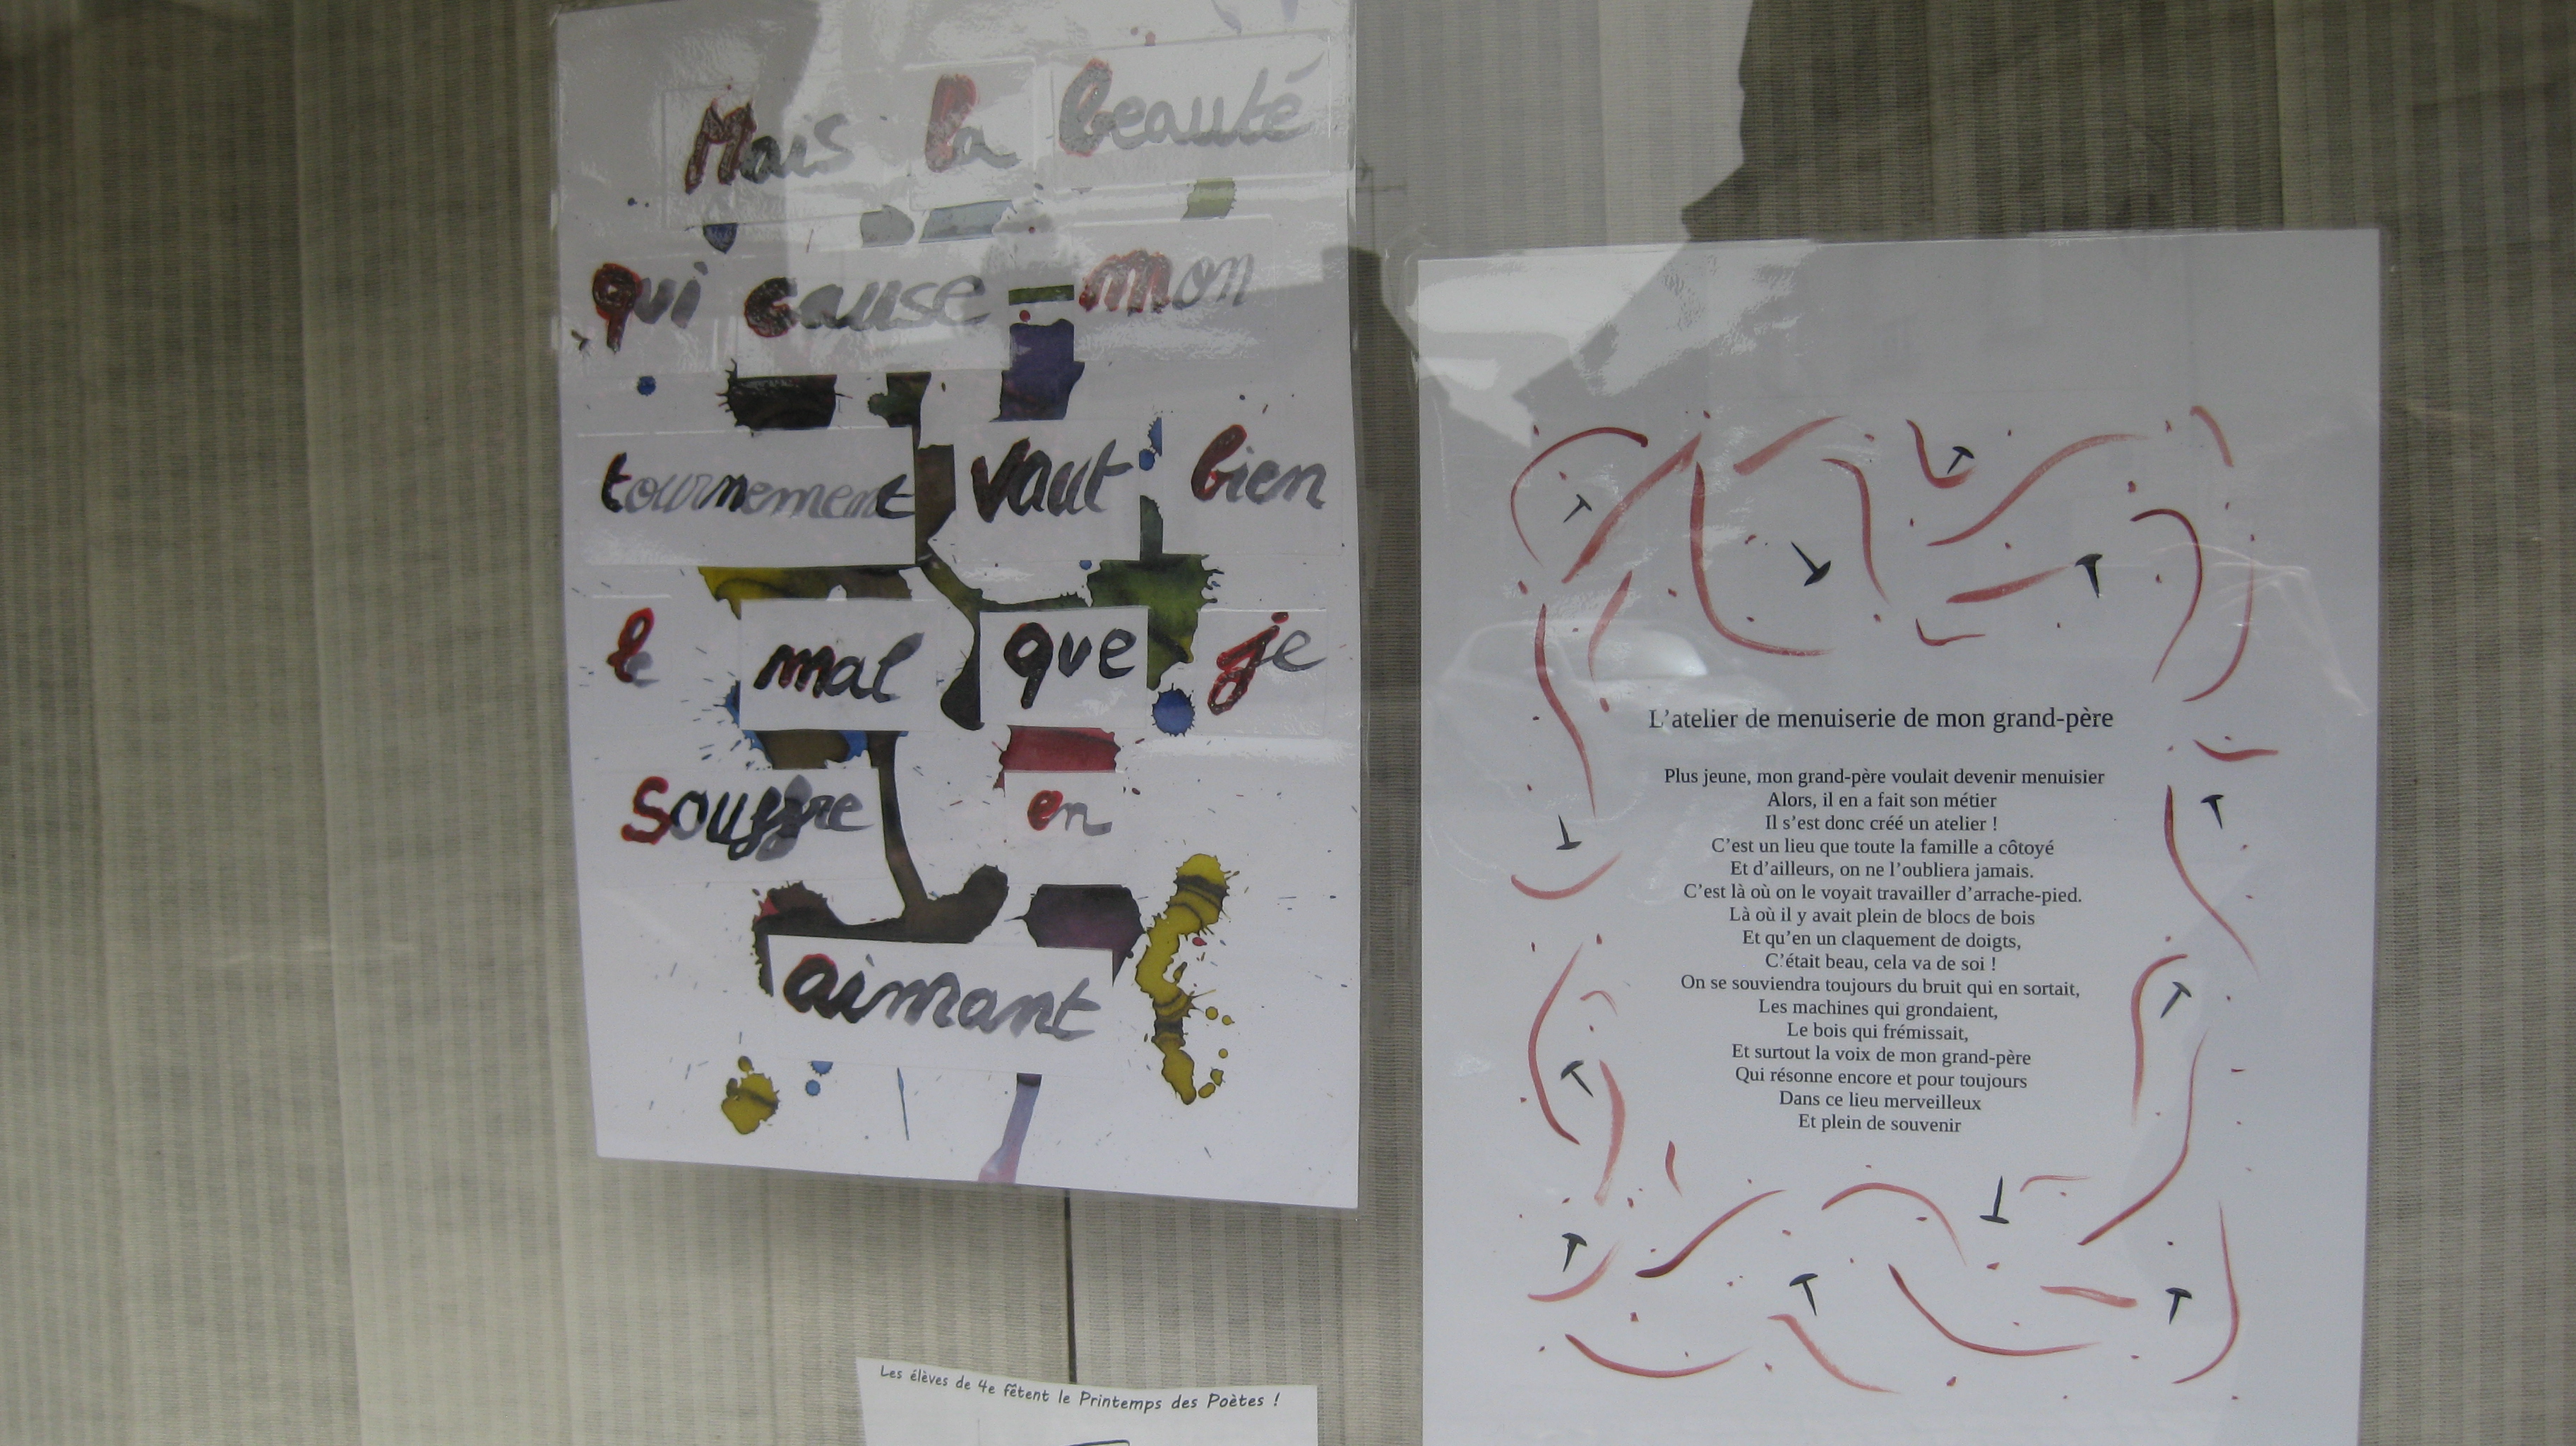 Mais la beauté
qui cause mon
tournement vaut bien
le mal que je
souffre en
aimant
L'atelier de menuiserie de mon grand-père
Plus jeune, mon grand-père voulait devenir menuisier
Alors, il en a fait son métier
Il s'est donc créé un atelier !
C'est un lieu que toute la famille a côtoyé
Et d'ailleurs, on ne l'oubliera jamais.
C'est là où on le voyait travailler d'arrache-pied.
Là où il y avait plein de blocs de bois
Et qu'en un claquement de doigts,
C'était beau, cela va de soi !
On se souviendra toujours du bruit qui en sortait,
Les machines qui grondaient,
Le bois qui frémissait,
Et surtout la voix de mon grand-père
Qui résonne encore et pour toujours
Dans ce lieu merveilleux
Et plein de souvenir
Les élèves de 4e fêtent le Printemps des Poètes !